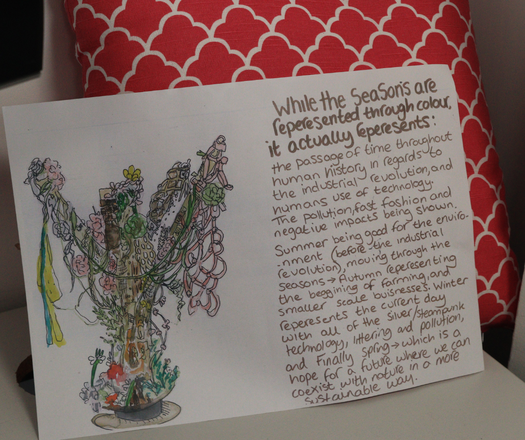 While the Seasons are
reperesented through colour,
it actually reperesents:
the passage of time throughout
human history in regards to
the industrial revolution, and
humans use of technology.
The pollution, fast fashion and
negative impacts being shown.
Summer being good for the enviro-
-nment (before the industrial
revolution), moving through the
seasons → Autumn representing
the beggining of farming, and
smaller scale businesses. Winter
reperesents the current day
with all of the silver/steampunk
technology, littering and pollution,
and finally spring → which is a
hope for a future where we can
coexist with nature in a more
sustainable way.